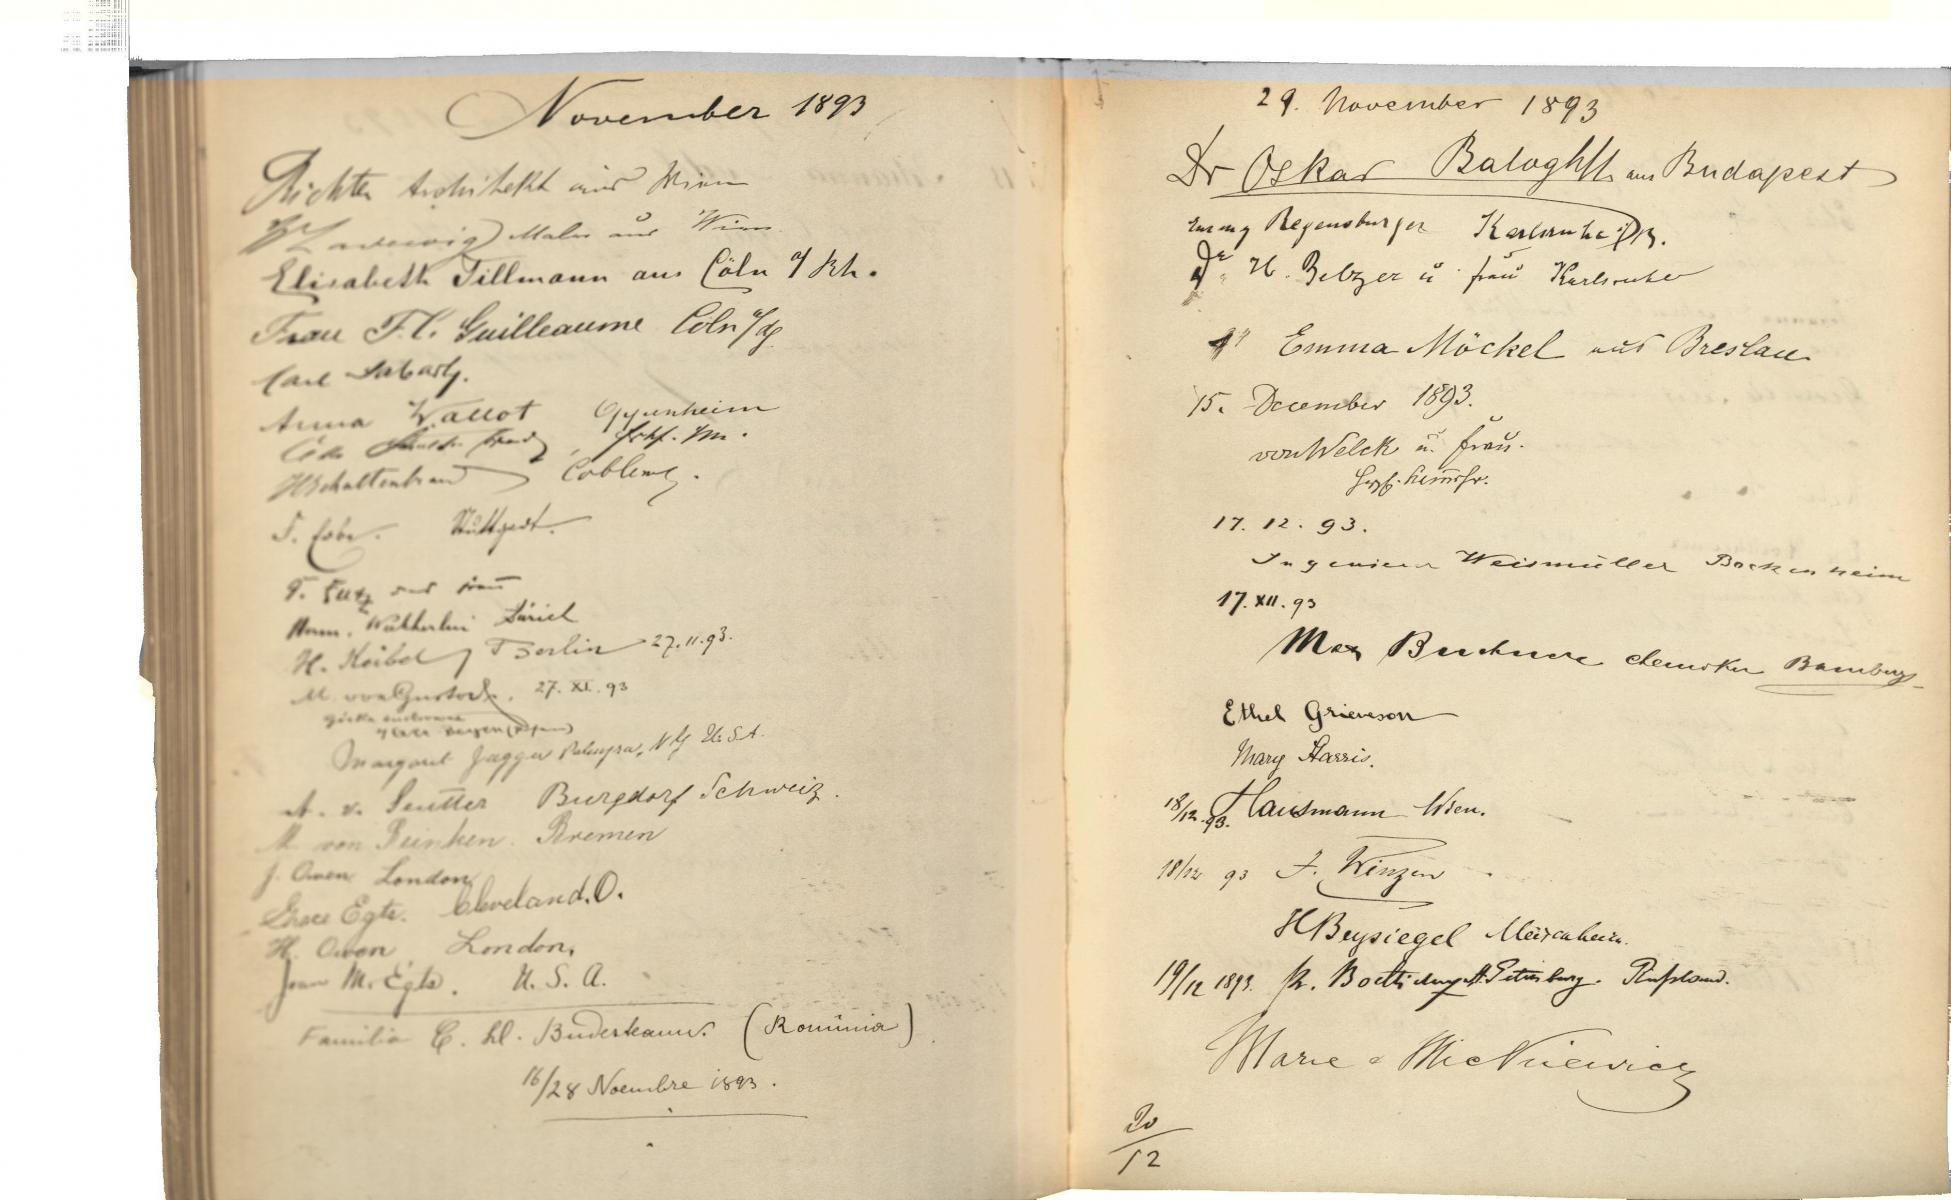 November 1893
Richter Architekt aus Wien
Maler aus Wien
Elisabeth Tillmann aus Cöln a/Rh.
Frau F. C. Guilleaume Cöln a/Rh
Carl
Anna Wallot Oppenheim
Coblenz.
F. Stuttgart.
F. und Frau
Herm. Zürich
H. Keibel Berlin 27.11.93.
M. von 27. XI. 93
Margaret Jagger Palmyra, N.Y. U.S.A.
A. v. Seutter Burgdorf Schweiz.
M von Reinken. Bremen
J. Owen London
Grace Egts. Cleveland. O.
H. Owen, London.
M. Egts. U. S. A.
Familia C. Budisteanu. (Romînia)
16/28 Noembre 1893.
29. November 1893
Dr Oskar Balogh aus Budapest
Regensburger Karlsruhe i/B.
Dr. H. Belzer u. Frau Karlsruhe
Emma Möckel aus Breslau
15. December 1893.
von Welck u. Frau.
17. 12. 93.
Ingenieur Weismüller Bockenheim
17. XII. 93
Max Buchner chemiker Bamberg
Ethel Grieveson
Mary Harris.
18/12. 93. Hausmann Wien.
18/12 93 F. Winzen
H Beysiegel Meisenheim.
19/12 1893. St. Petersburg. Rußland.
Marie Mickiewicz
20/12